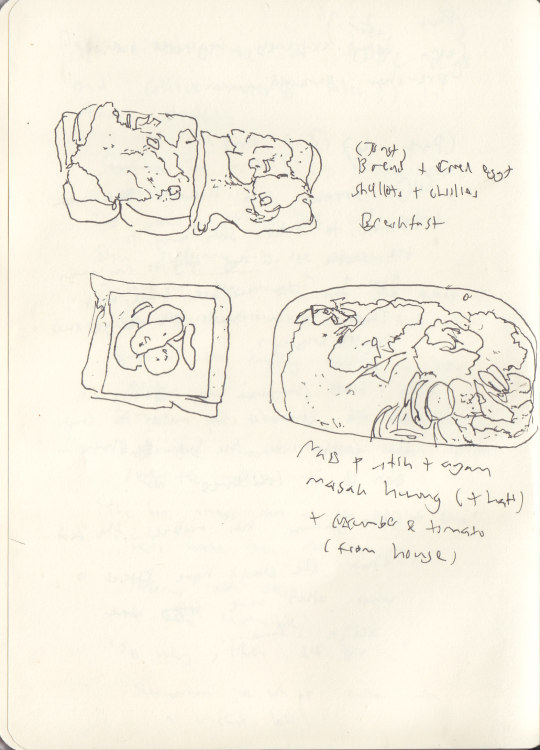 Bread + Fried eggs
shallots + chillies
Breakfast
Nasi + itik + ayam
masak (+ hati)
+ cucumber & tomato
(from house)